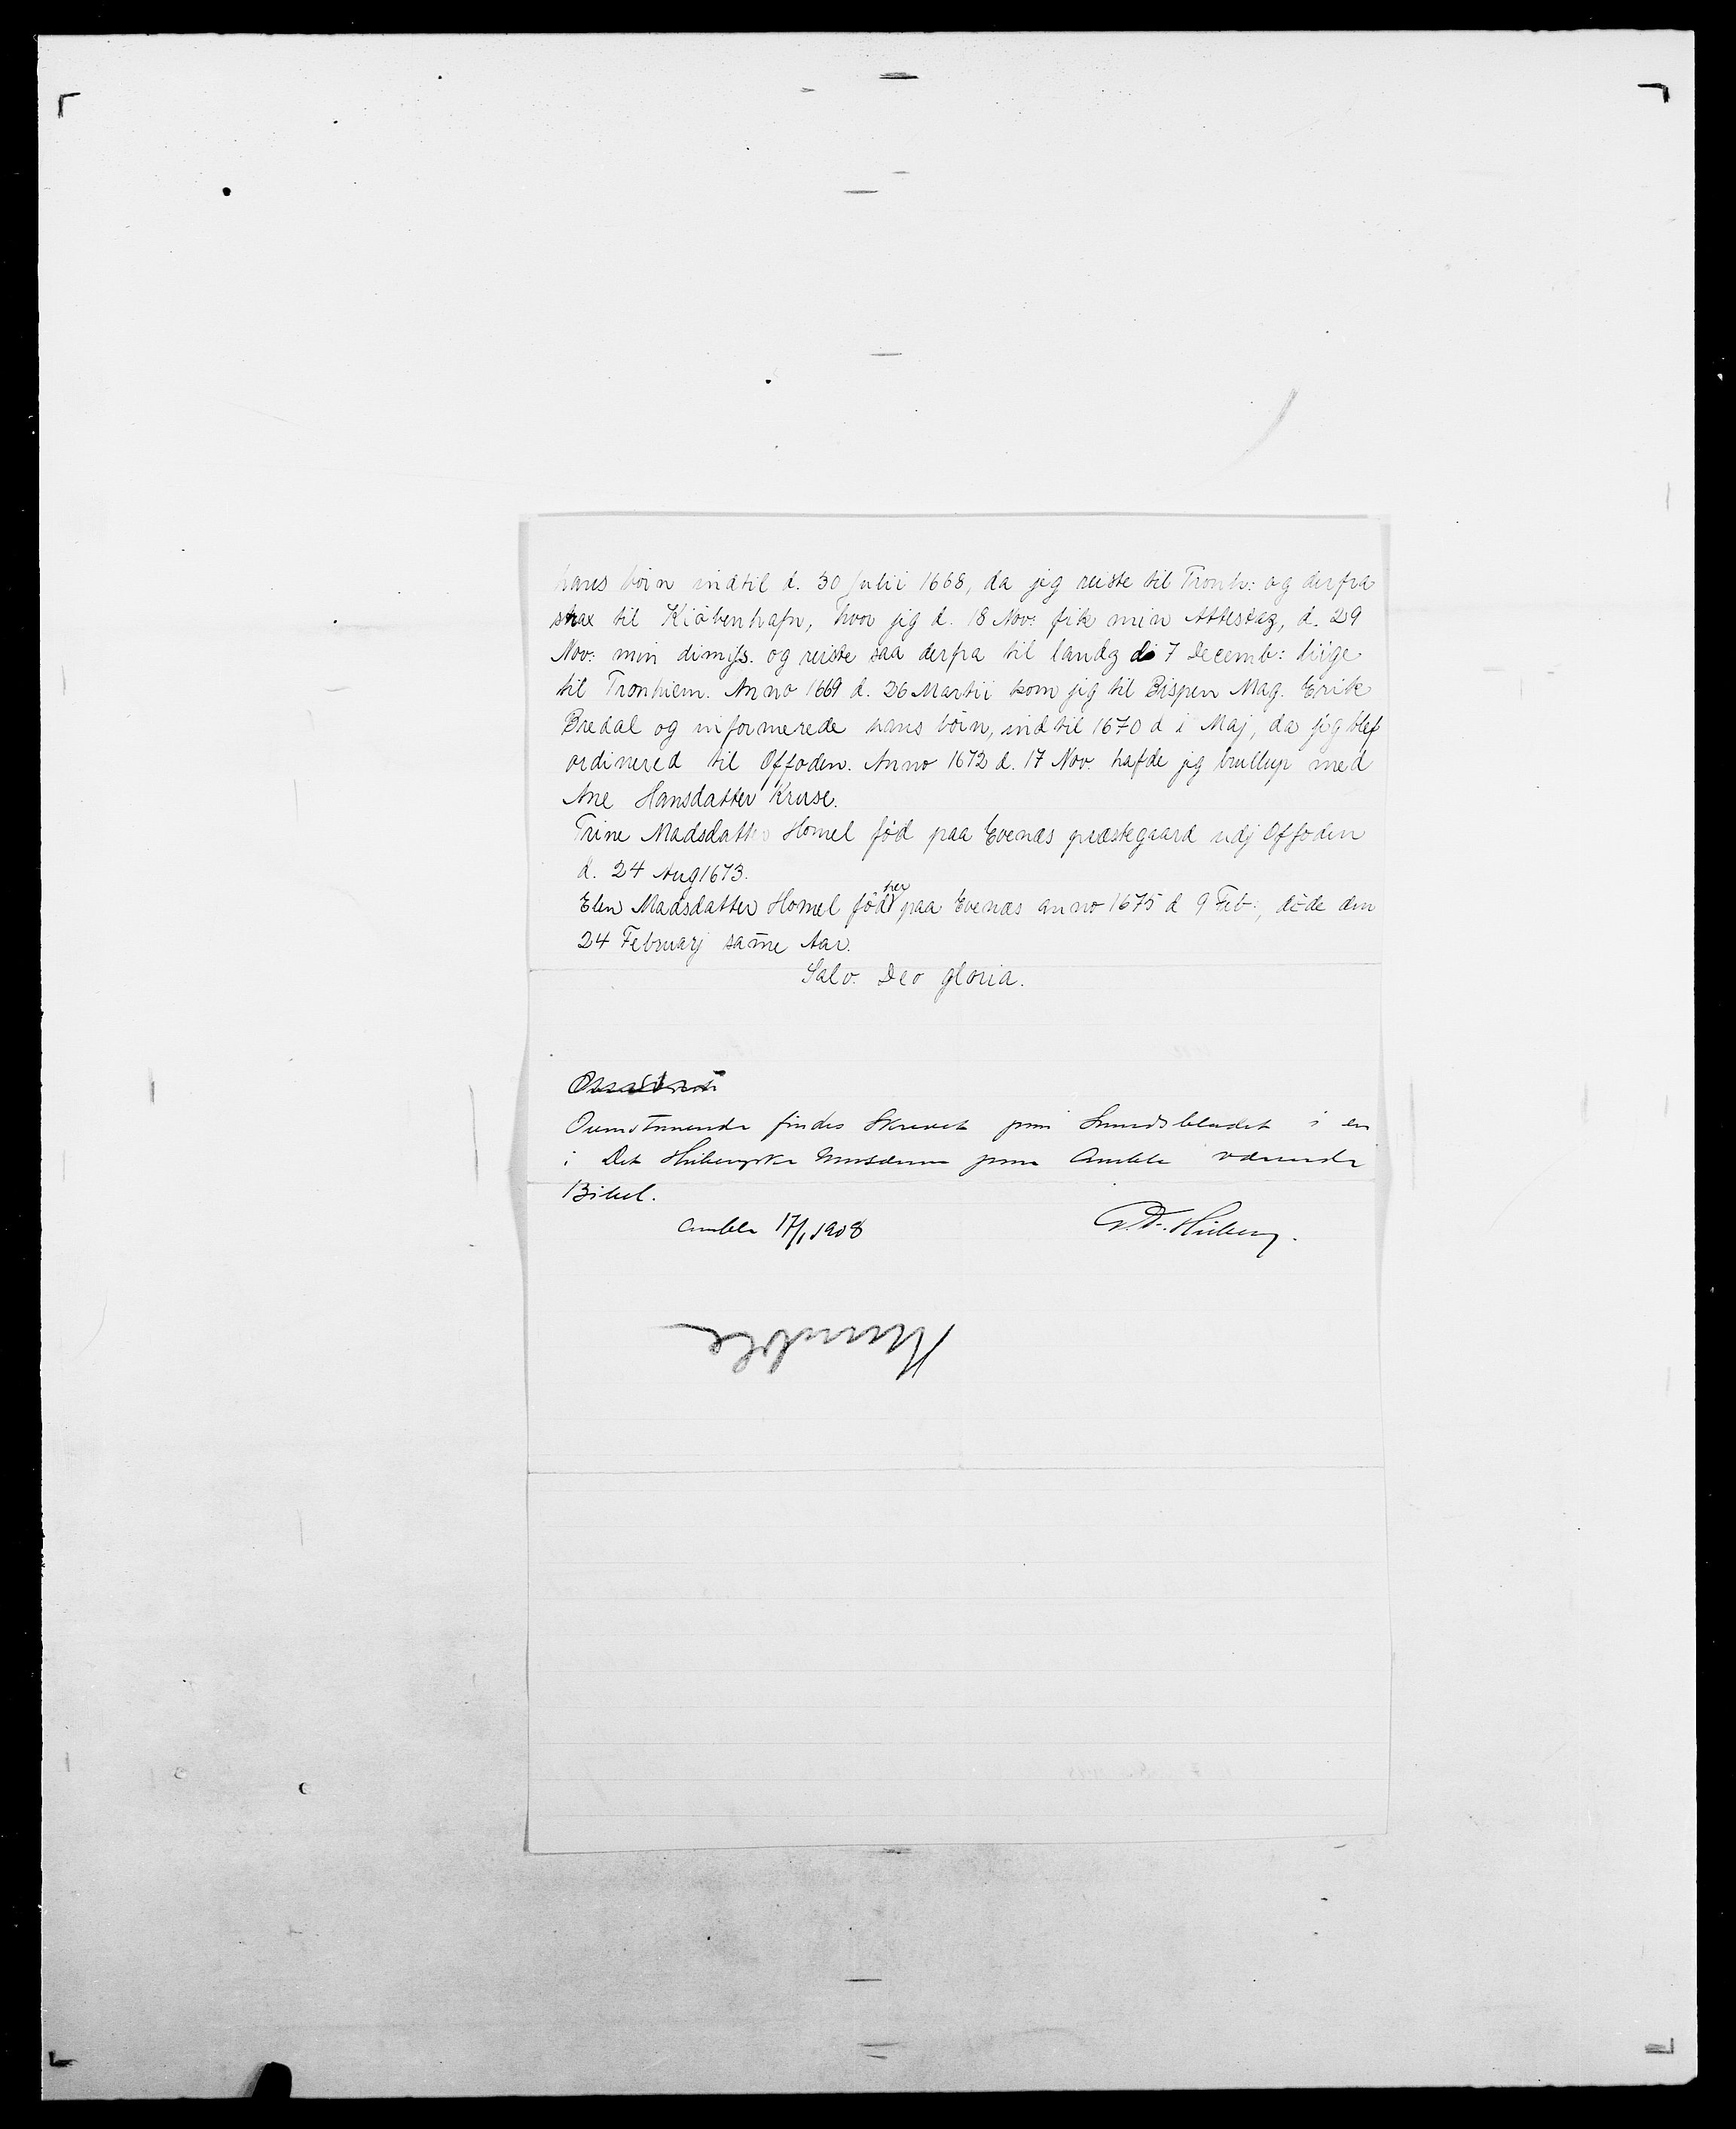 hans börn indtil d. 30 Julii 1668, da jeg reiste til Tronh: og derfra
strax til Kiöbenhafn, hvor jeg d. 18 Nov: fik min Attestaz, d. 29
Nov: min dimiss. og reiste saa derfra til landz d 7 Decemb: liige
til Tronhiem. Anno 1669 d. 26 Martii kom jeg til Bispen Mag. Erik
Bredal og informerede hans börn, indtil 1670 d i Maj, da jeg blef
ordinered til Offoden. Anno 1672 d. 17 Nov. hafde jeg brullup med
Ane Hansdatter Kruse.
Trine Madsdatter Homel fød paa Evenæs præstegaard udj Offoden
d. 24 Aug 1673.
Elen Madsdatter Homel fød her paa Evenæs anno 1675 d 9 Feb:, döde den
24 Februarj sam̄e Aar.
Salv. Deo gloria.
Ovenstaaende findes skrevet paa Smudsbladet i en
i Det Heibergske Museum paa Amble værende
Bibel.
Amble 17/1 1908 G. F. Heiberg.